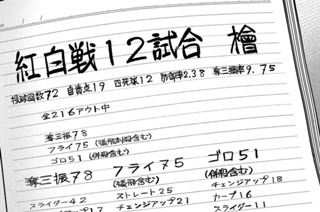 紅白戦12試合 檜
投球回数72 自責点19 四死球12 防御率2.38 奪三振率9.75
全216アウト中
奪三振78
フライ75(犠飛邪飛含む)
ゴロ51(併殺含む)
奪三振78 フライ75 ゴロ51
(犠飛含む) (併殺含む)
スライダー42 ストレート25 チェンジアップ18
チェンジアップ21 カーブ16
スライダー11